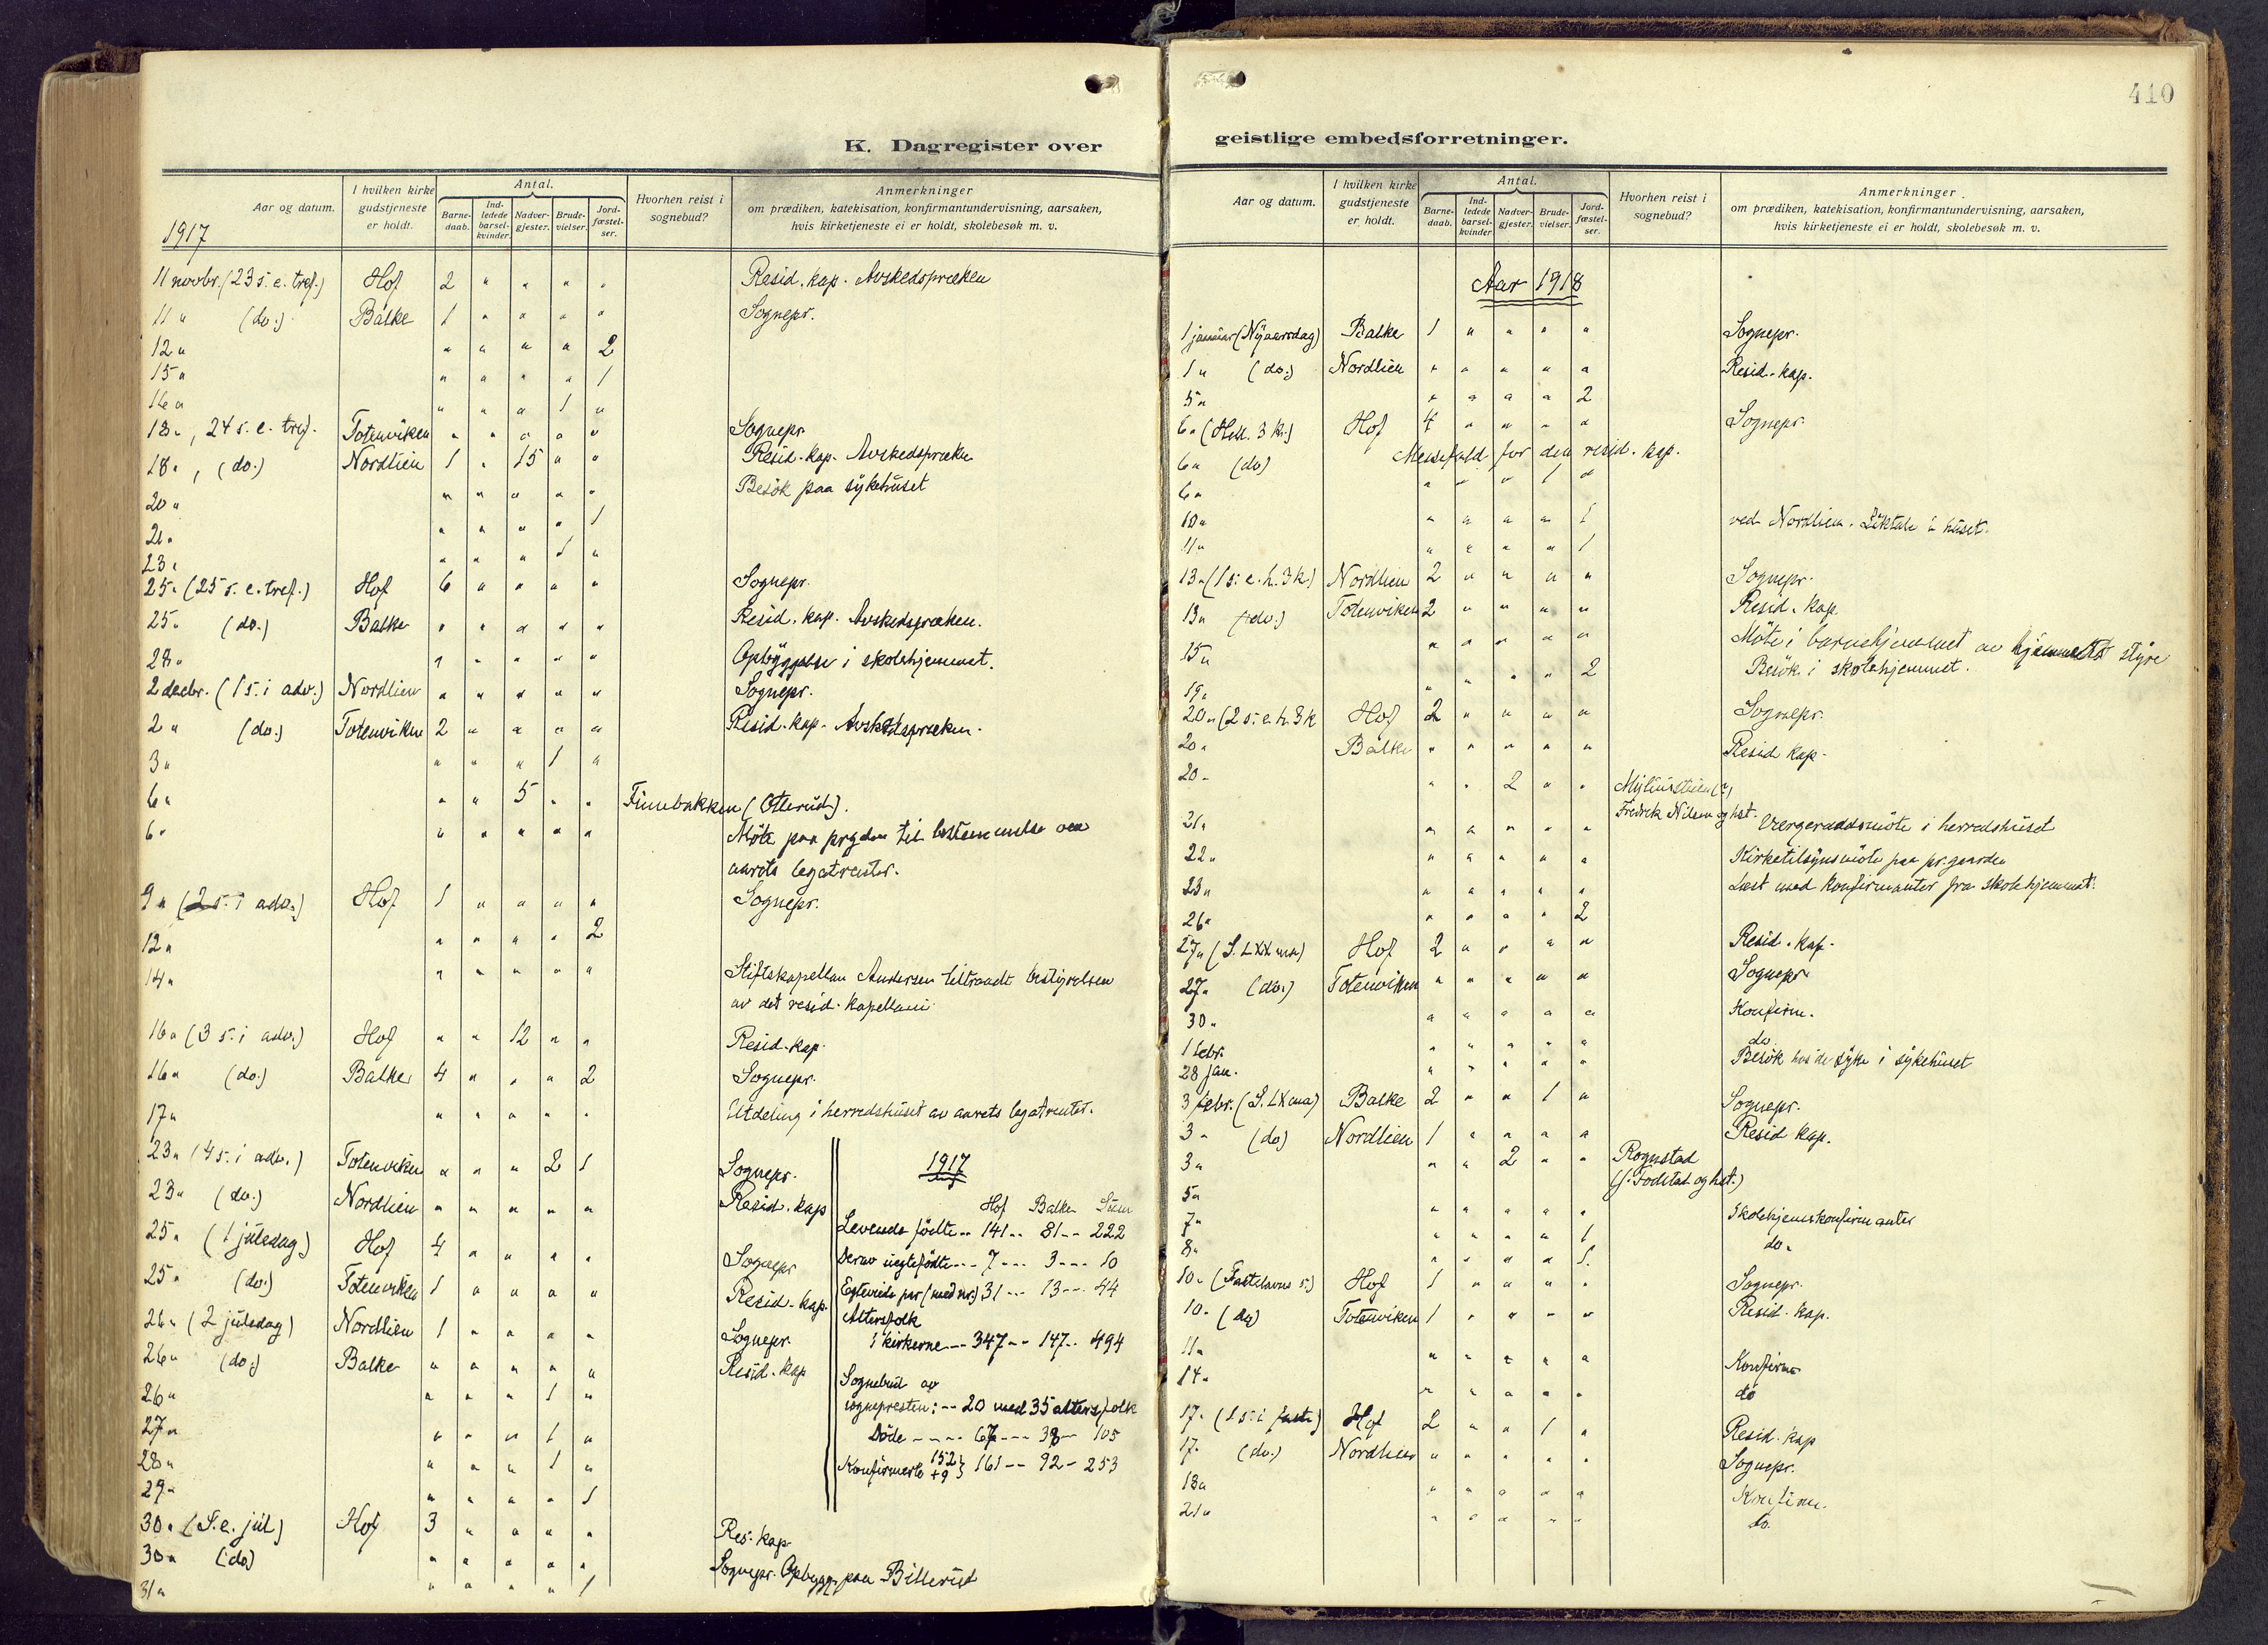 K. Dagregister over
Aar og datum.
I hvilken kirke gudstjeneste er holdt.
Antal.
Barne-daab.
Ind-ledede barsel-kvinder.
Nadver-gjester.
Brude-vielser.
Jord-fæstel-ser.
Hvorhen reist i sognebud?
Anmerkninger
om prædiken, katekisation, konfirmantundervisning, aarsaken,
hvis kirketjeneste ei er holdt, skolebesøk m. v.
1917
11 novbr. (23 s. e. tref.) Hof 2 " " " " Resid. kap. Avskedspræken
11 " (do.) Balke 1 " " " " Sognepr.
12 " " " " " 2
15 " " " " " 1
16 " " " " 1 "
18 ", 24 s. e. tref. Totenviken " " " " " Sognepr
18 ", (do.) Nordlien 1 " 15 " " Resid. kap. Avskedspræken
20 " " " " " " Besök paa sykehuset
21 " " " " " 1
23 " " " " 1 "
25 " (25 s. e. tref.) Hof 6 " " " " Sognepr.
25 " (do.) Balke " " " " " Resid. kap. Avskedspræken.
28 " " " " " " Opbyggelse i skolehjemmet.
2 decbr. (1 s. i adv.) Nordlien " " " " " Sognepr.
2 " (do.) Totenviken 2 " " " " Resid. kap. Avskedspræken.
3 " " " " 1 "
6 " " " 5 " " Finnebakken (Otterud).
6 " " " " " " Möte paa prgden til bestemmelse om
aarets legatrenter.
9 " (2 s. i adv.) Hof 1 " " " " Sognepr.
12 " " " " " 2
14 " " " " " " Stiftskapellan Andersen tiltraadt bestyrelsen
av det resid. kapellani
16 " (3 s. i adv.) Hof " " 12 " " Resid. kap.
16 " (do.) Balke 4 " " " 2 Sognepr.
17 " " " " " " Utdeling i herredshuset av aarets legatrenter.
23 " (4 s. i adv.) Totenviken " " " 2 1 Sognepr.
23 " (do.) Nordlien " " " " " Resid. kap
25 " (1 juledag) Hof 4 " " " " Sognepr
25 " (do.) Totenviken 1 " " " " Resid. kap.
26 " (2 juledag) Nordlien 1 " " " " Sognepr.
26 " (do.) Balke " " " " " Resid. kap
26 " " " " 1 "
27 " " " " 1 "
28 " " " " 1 "
29 " " " " " 1
30 " (S. e. jul) Hof 3 " " " " Res. kap
30 " (do) " " " " " Sognepr. Opbygg. paa Billerud
31 " " " " " 1
1917
Hof Balke Sum
Levende födte -- 141 -- 81 -- 222
Derav uegtefödte --- 7 --- 3 --- 10
Egteviede par (med nr.) 31 --- 13 --- 44
Altersfolk
i kirkerne --- 347 -- 147 -- 494
Sognebud av
sognepresten: -- 20 med 35 altersfolk
Döde ---- 67 --- 38 -- 105
Konfirmerte 152 + 9 } 161 -- 92 - 253
410
geistlige embedsforretninger.
Aar og datum.
I hvilken kirke gudstjeneste er holdt.
Antal.
Barne-daab.
Ind-ledede barsel-kvinder
Nadver-gjester.
Brude-vielser.
Jord-fæstel-ser.
Hvorhen reist i sognebud?
Anmerkninger
om prædiken, katekisation, konfirmantundervisning, aarsaken,
hvis kirketjeneste ei er holdt, skolebesøk m. v.
Aar 1918
1 januar (Nyaarsdag) Balke 1 " " " " Sognepr.
1 " (do.) Nordlien " " " " " Resid. kap.
5 " " " " " 2
6 " (Hell. 3 k.) Hof 4 " " " " Sognepr.
6 " (do) Messefald for den resid. kap.
6 " " " " 1 "
10 " " " " " 1 ved Nordlien. Liktale i huset.
11 " " " " " 1
13 " (1 s. e. h. 3 k.) Nordlien 2 " " " " Sognepr.
13 " (do.) Totenviken 2 " " " " Resid. kap.
15 " " " " " " Möte i barnehjemmet av hjemmets styre
19 " " " " " 2 Besök i skolehjemmet.
20 " (2 s. e. h. 3 k Hof 2 " " " " Sognepr.
20 " Balke " " " " " Resid kap.
20 " " " 2 " "
Fredrik Nilsen og hst.
21 " " " " " " Vergeraadsmöte i herredshuset
22 " " " " " " Kirketilsynsmöte paa pr.gaarden
23 " " " " " " Læst med konfirmanter fra skolehjemmet.
26 " " " " " 2
27 " (S. LXX ma) Hof 2 " " " " Resid. kap.
27 " (do.) Totenviken " " " " " Sognepr
30 " " " " " " Konfirm.
1 febr. " " " " " do.
28 jan. " " " " " Besök hos de syke i sykehuset
3 febr. (S. LX ma) Balke 2 " " 1 " Sognepr.
3 " (do) Nordlien 1 " " " " Resid kap.
3 " " " 2 " " Rognstad
(J. Fodstad og hst.)
5 " " " " " " Skolehjemskonfirmanter
7 " " " " " 1 do.
8 " " " " " 1.
10 " (Fastelavns s.) Hof 1 " " " " Sognepr.
10 " (do) Totenviken 1 " " " " Resid. kap.
11 " " " " " " Konfirm
14 " " " " " " do
17 " (1 s. i faste) Hof 2 " " 1 " Resid. kap
17 " (do.) Nordlien " " " " " Sognepr.
18 " " " " " " Konfirm.
21 " " " " " " do.